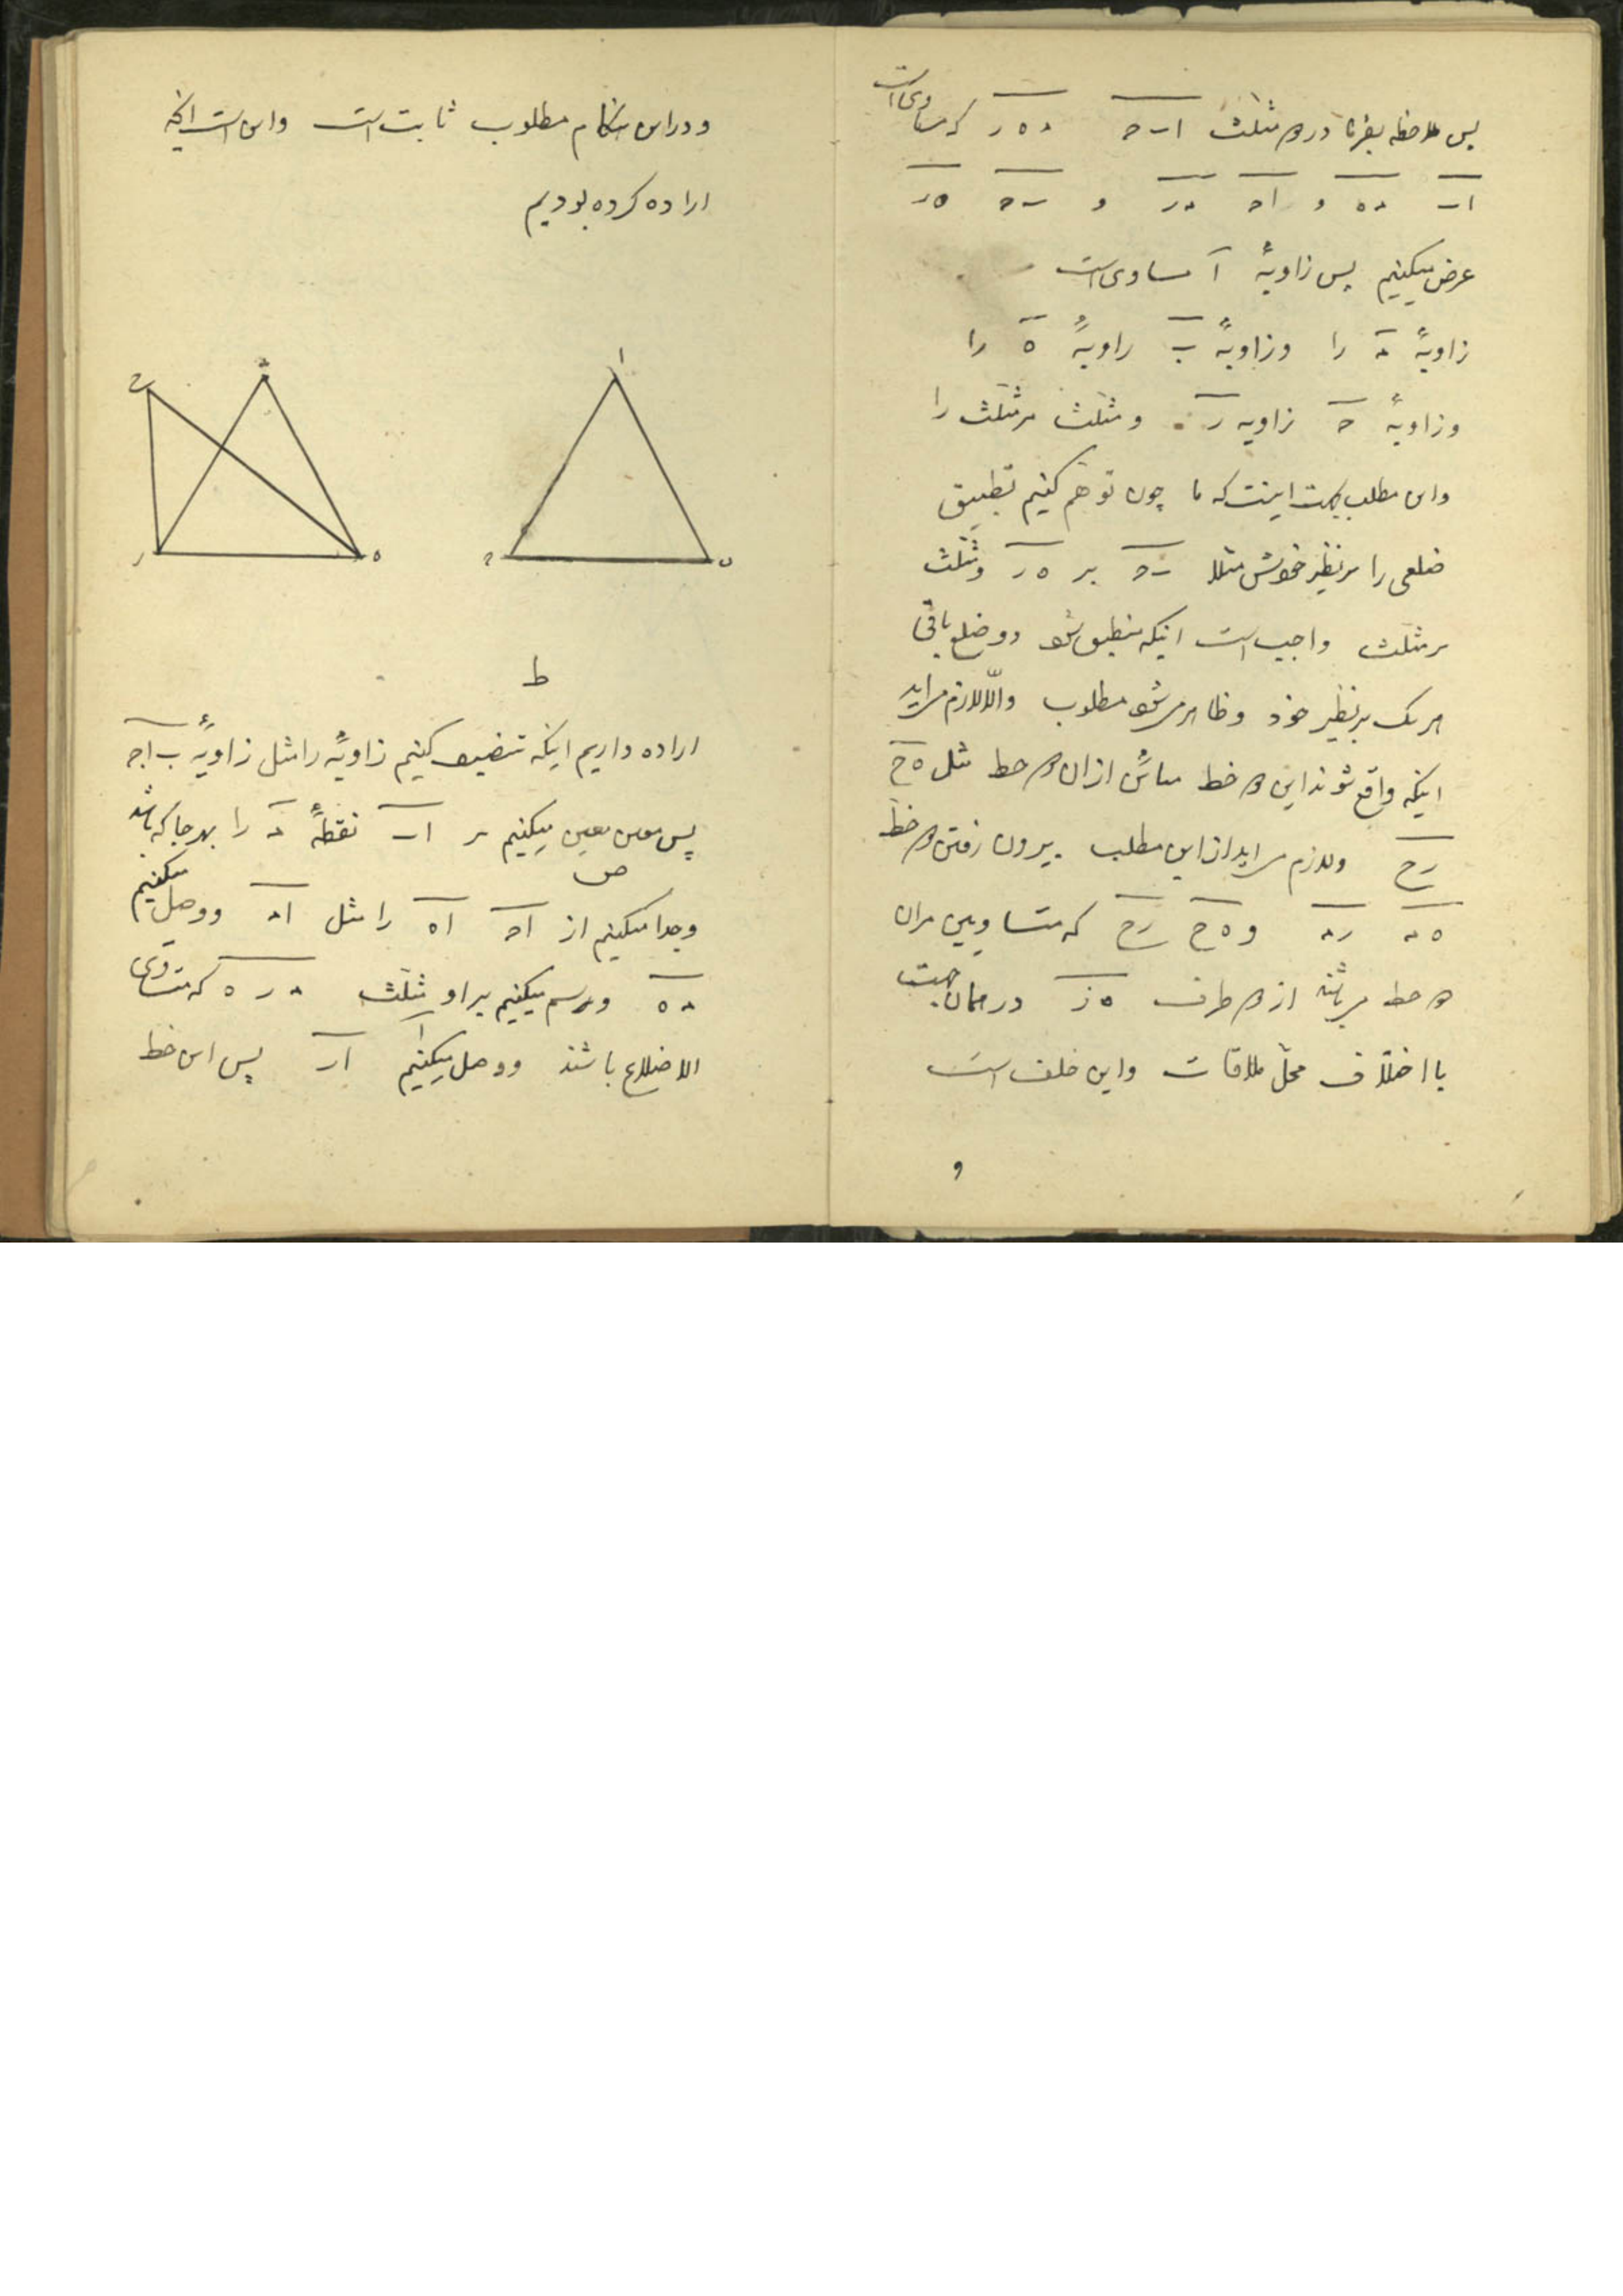 پس ملاحظه بفرما در دو مثلث ا ب ح د ه ر که مساوی است
ا ب د ه و ا ح د ر و ب ح ه ر
عرض میکنیم پس زاویهٔ ا مساوی است
زاویهٔ د را و زاویهٔ ب زاویهٔ ه را
و زاویهٔ ح زاویه ر و مثلث مر مثلث را
و این مطلب اینست که ما چون توهم کنیم تطبیق
ضلعی را بر نظیر خودش مثلا ب ح بر ه ر و مثلث
بر مثلث واجب است اینکه منطبق شود دو ضلع باقی
هر یک بر نظیر خود و ظاهر میشود مطلوب والّا لازم میاید
اینکه واقع شوند این دو خط مباین از ان دو خط مثل ه ح
ر ح و لازم میاید از این مطلب بیرون رفتن دو خط
ه د ر د و ه ح ر ح که متساویین مران
دو خط میباشند از دو طرف ه ز در همان جهت
با اختلاف محلّ ملاقات و این خلف است
و
و در این هنگام مطلوب ثابت است و این است انچه
اراده کرده بودیم
ا
ب
ح
د
ح
ر
ه
ط
اراده داریم اینکه تنصیف کنیم زاویهٔ را مثل زاویهٔ ب ا ح
پس معین میکنیم بر ا ب نقطهٔ د را بهر جا که باشد
ص
و جدا میکنیم از ا ح ا ه را مثل ا د و وصل میکنیم
د ه و رسم میکنیم بر او مثلث د ر ه که متساوی
الاضلاع باشند و وصل میکنیم ا ر پس این خط